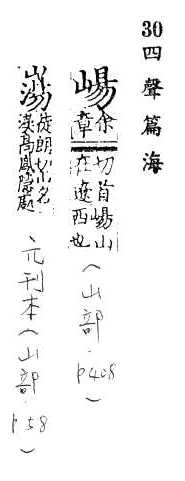 30四聲篇海
崵余章切首崵山在遼西也(山部.p408)
徒朗切山名漢高鳳隱處元刊本(山部.p58)